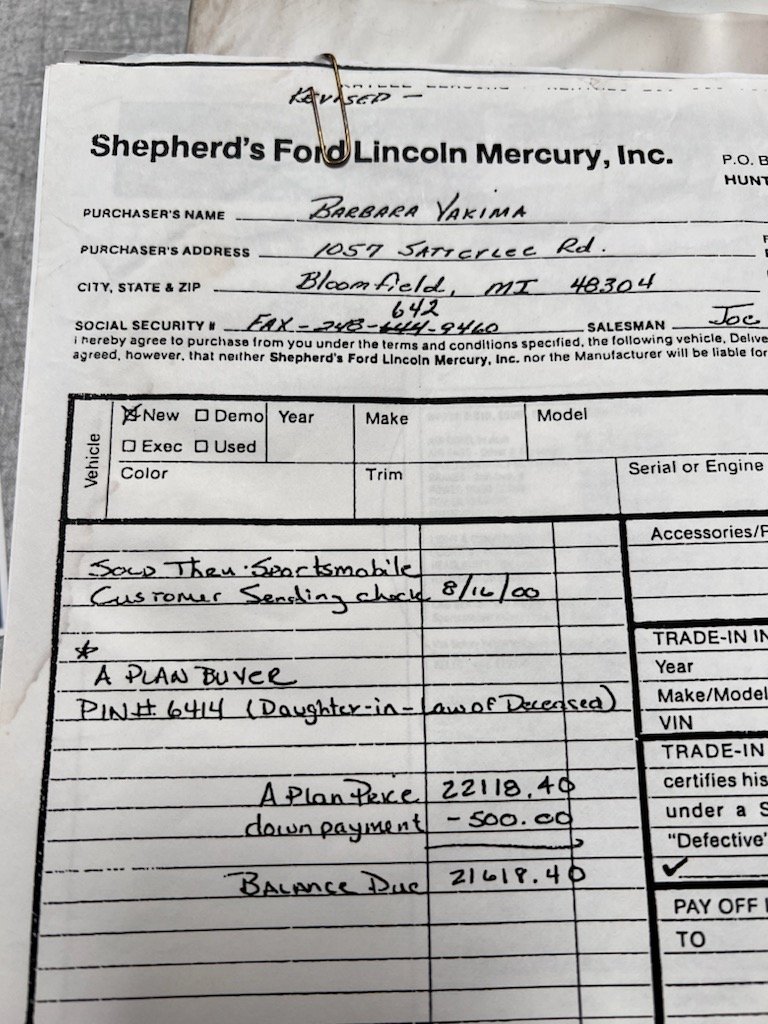 REVISED -
Shepherd's Ford Lincoln Mercury, Inc.
P.O. B
HUNT
PURCHASER'S NAME BARBARA YAKIMA
PURCHASER'S ADDRESS 1057 SATTERLEE Rd.
CITY, STATE & ZIP Bloomfield, MI 48304
642
SOCIAL SECURITY # FAX-248-644-9460 SALESMAN Joe
I hereby agree to purchase from you under the terms and conditions specified, the following vehicle, Delive
agreed, however, that neither Shepherd's Ford Lincoln Mercury, Inc. nor the Manufacturer will be liable for
Vehicle
New Demo Year Make Model
Exec Used
Color Trim Serial or Engine
Accessories/
Sold Thru Sportsmobile
Customer Sending check 8/16/00
*
A PLAN BUYER
PIN# 6414 (Daughter-in-Law of Deceased)
TRADE-IN IN
Year
Make/Model
VIN
TRADE-IN
certifies his
under a S
"Defective"
A Plan Price 22118.40
down payment - 500.00
Balance Due 21618.40
PAY OFF
TO